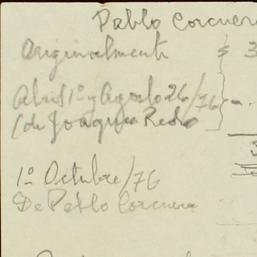 Pablo Corcuer
Originalmente $ 3
Abril 1º y Agosto 26/76
(de Joaquin Redo
1º Octubre/76
De Pablo Corcuera